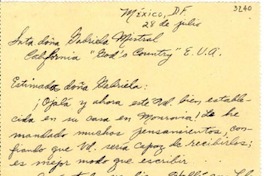 México, D.F.
28 de julio
3260
Srta doña Gabriela Mistral
California "God's Country" E.U.A.
Estimada doña Gabriela:
¡Ojalá y ahora este Ud. bien estable-
cida en su casa en Monrovia! Le he
mandado muchos pensamientos, con-
fiando que Ud. sería capaz de recibirlos;
es mejor modo que escribir.